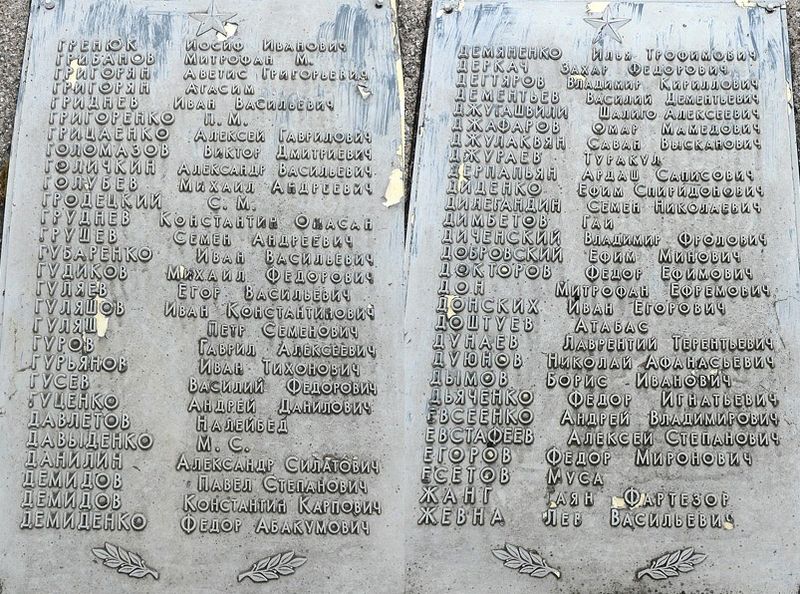 ГРЕНЮК ИОСИФ ИВАНОВИЧ
ГРИБАНОВ МИТРОФАН М.
ГРИГОРЯН АВЕТИС ГРИГОРЬЕВИЧ
ГРИГОРЯН АГАСИМ
ГРИДНЕВ ИВАН ВАСИЛЬЕВИЧ
ГРИГОРЕНКО П. М.
ГРИЦАЕНКО АЛЕКСЕЙ ГАВРИЛОВИЧ
ГОЛОМАЗОВ ВИКТОР ДМИТРИЕВИЧ
ГОЛИЧКИН АЛЕКСАНДР ВАСИЛЬЕВИЧ
ГОЛУБЕВ МИХАИЛ АНДРЕЕВИЧ
ГРОДЕЦКИЙ С. М.
ГРУДНЕВ КОНСТАНТИН ОНАСАН
ГРУШЕВ СЕМЕН АНДРЕЕВИЧ
ГУБАРЕНКО ИВАН ВАСИЛЬЕВИЧ
ГУДИКОВ МИХАИЛ ФЕДОРОВИЧ
ГУЛЯЕВ ЕГОР ВАСИЛЬЕВИЧ
ГУЛЯШОВ ИВАН КОНСТАНТИНОВИЧ
ГУЛЯШ ПЕТР СЕМЕНОВИЧ
ГУРОВ ГАВРИЛ АЛЕКСЕЕВИЧ
ГУРЬЯНОВ ИВАН ТИХОНОВИЧ
ГУСЕВ ВАСИЛИЙ ФЕДОРОВИЧ
ГУЦЕНКО АНДРЕЙ ДАНИЛОВИЧ
ДАВЛЕТОВ НАЛЕЙБЕД
ДАВЫДЕНКО М. С.
ДАНИЛИН АЛЕКСАНДР СИЛАТОВИЧ
ДЕМИДОВ ПАВЕЛ СТЕПАНОВИЧ
ДЕМИДОВ КОНСТАНТИН КАРПОВИЧ
ДЕМИДЕНКО ФЕДОР АБАКУМОВИЧ
ДЕМЯНЕНКО ИЛЬЯ ТРОФИМОВИЧ
ДЕРКАЧ ЗАХАР ФЕДОРОВИЧ
ДЕГТЯРОВ ВЛАДИМИР КИРИЛЛОВИЧ
ДЕМЕНТЬЕВ ВАСИЛИЙ ДЕМЕНТЬЕВИЧ
ДЖУГАШВИЛИ ШАЛИГО АЛЕКСЕЕВИЧ
ДЖАФАРОВ ОМАР МАМЕДОВИЧ
ДЖУЛАКВЯН САВАН ВЫСКАНОВИЧ
ДЖУРАЕВ ТУРАКУЛ
ДЕРПАПЬЯН АРДАШ САПИСОВИЧ
ДИДЕНКО ЕФИМ СПИРИДОНОВИЧ
ДИЛЕГАНДИН СЕМЕН НИКОЛАЕВИЧ
ДИМБЕТОВ ГАИ
ДИЧЕНСКИЙ ВЛАДИМИР ФРОЛОВИЧ
ДОБРОВСКИЙ ЕФИМ МИНОВИЧ
ДОКТОРОВ ФЕДОР ЕФИМОВИЧ
ДОН МИТРОФАН ЕФРЕМОВИЧ
ДОНСКИХ ИВАН ЕГОРОВИЧ
ДОШТУЕВ АТАБАС
ДУНАЕВ ЛАВРЕНТИЙ ТЕРЕНТЬЕВИЧ
ДУЮНОВ НИКОЛАЙ АФАНАСЬЕВИЧ
ДЫМОВ БОРИС ИВАНОВИЧ
ДЬЯЧЕНКО ФЕДОР ИГНАТЬЕВИЧ
ЕВСЕЕНКО АНДРЕЙ ВЛАДИМИРОВИЧ
ЕВСТАФЕЕВ АЛЕКСЕЙ СТЕПАНОВИЧ
ЕГОРОВ ФЕДОР МИРОНОВИЧ
ЕСЕТОВ МУСА
ЖАНГ ТАЯН ФАРТЕЗОР
ЖЕВНА ЛЕВ ВАСИЛЬЕВИЧ